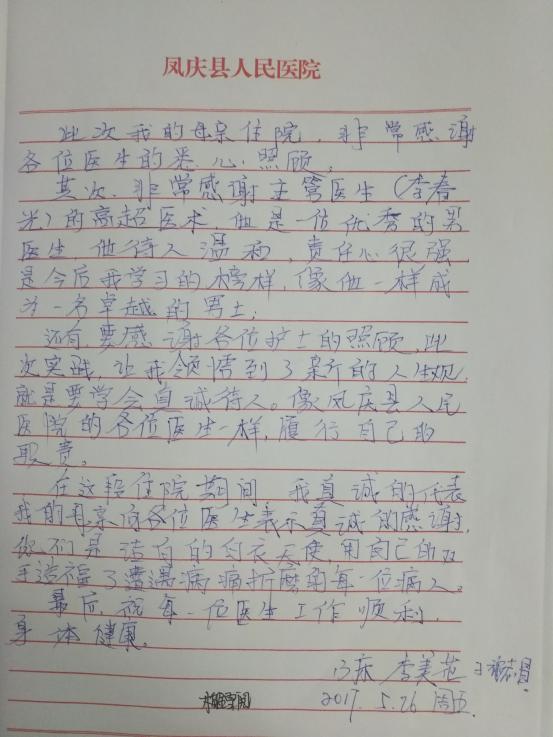 凤庆县人民医院
此次我的母亲住院，非常感谢
各位医生的悉心照顾，
其次、非常感谢主管医生（李春
光）的高超医术，他是一位优秀的男
医生，他待人温和，责任心很强，
是今后我学习的榜样，像他一样成
为一名卓越的男士；
还有，要感谢各位护士的照顾，此
次实践，让我领悟到了新的人生观，
就是要学会真诚待人。像凤庆县人民
医院的各位医生一样，履行自己的
职责。
在这段住院期间，我真诚的代表
我的母亲向各位医生表示真诚的感谢，
你们是洁白的白衣天使，用自己的双
手造福了遭遇病痛折磨的每一位病人。
最后，祝每一位医生工作顺利，
身体健康。
13床 李美芝
2017. 5.26 周五